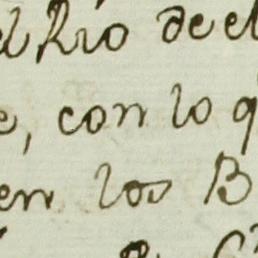 el Rio de el
e, con lo q
en los B